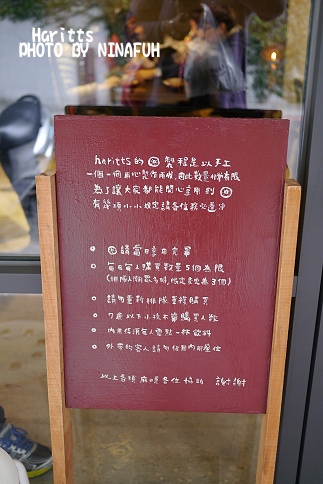 Haritts
PHOTO BY NINAFUH
haritts的 製程是以手工
一個一個用心製作而成,因此數量非常有限
為了讓大家都能開心享用到
有幾項小小規定請各位放心遵守
請當日食用完畢
每日每人購買數量5個為限
(排隊人潮眾多時,限定客數為3個)
請勿重新排隊重複購買
7歲以下小孩不算購買人數
內用低消每人需點一杯飲料
外帶的客人請勿佔用內用座位
以上各項 麻煩各位 協助 謝謝